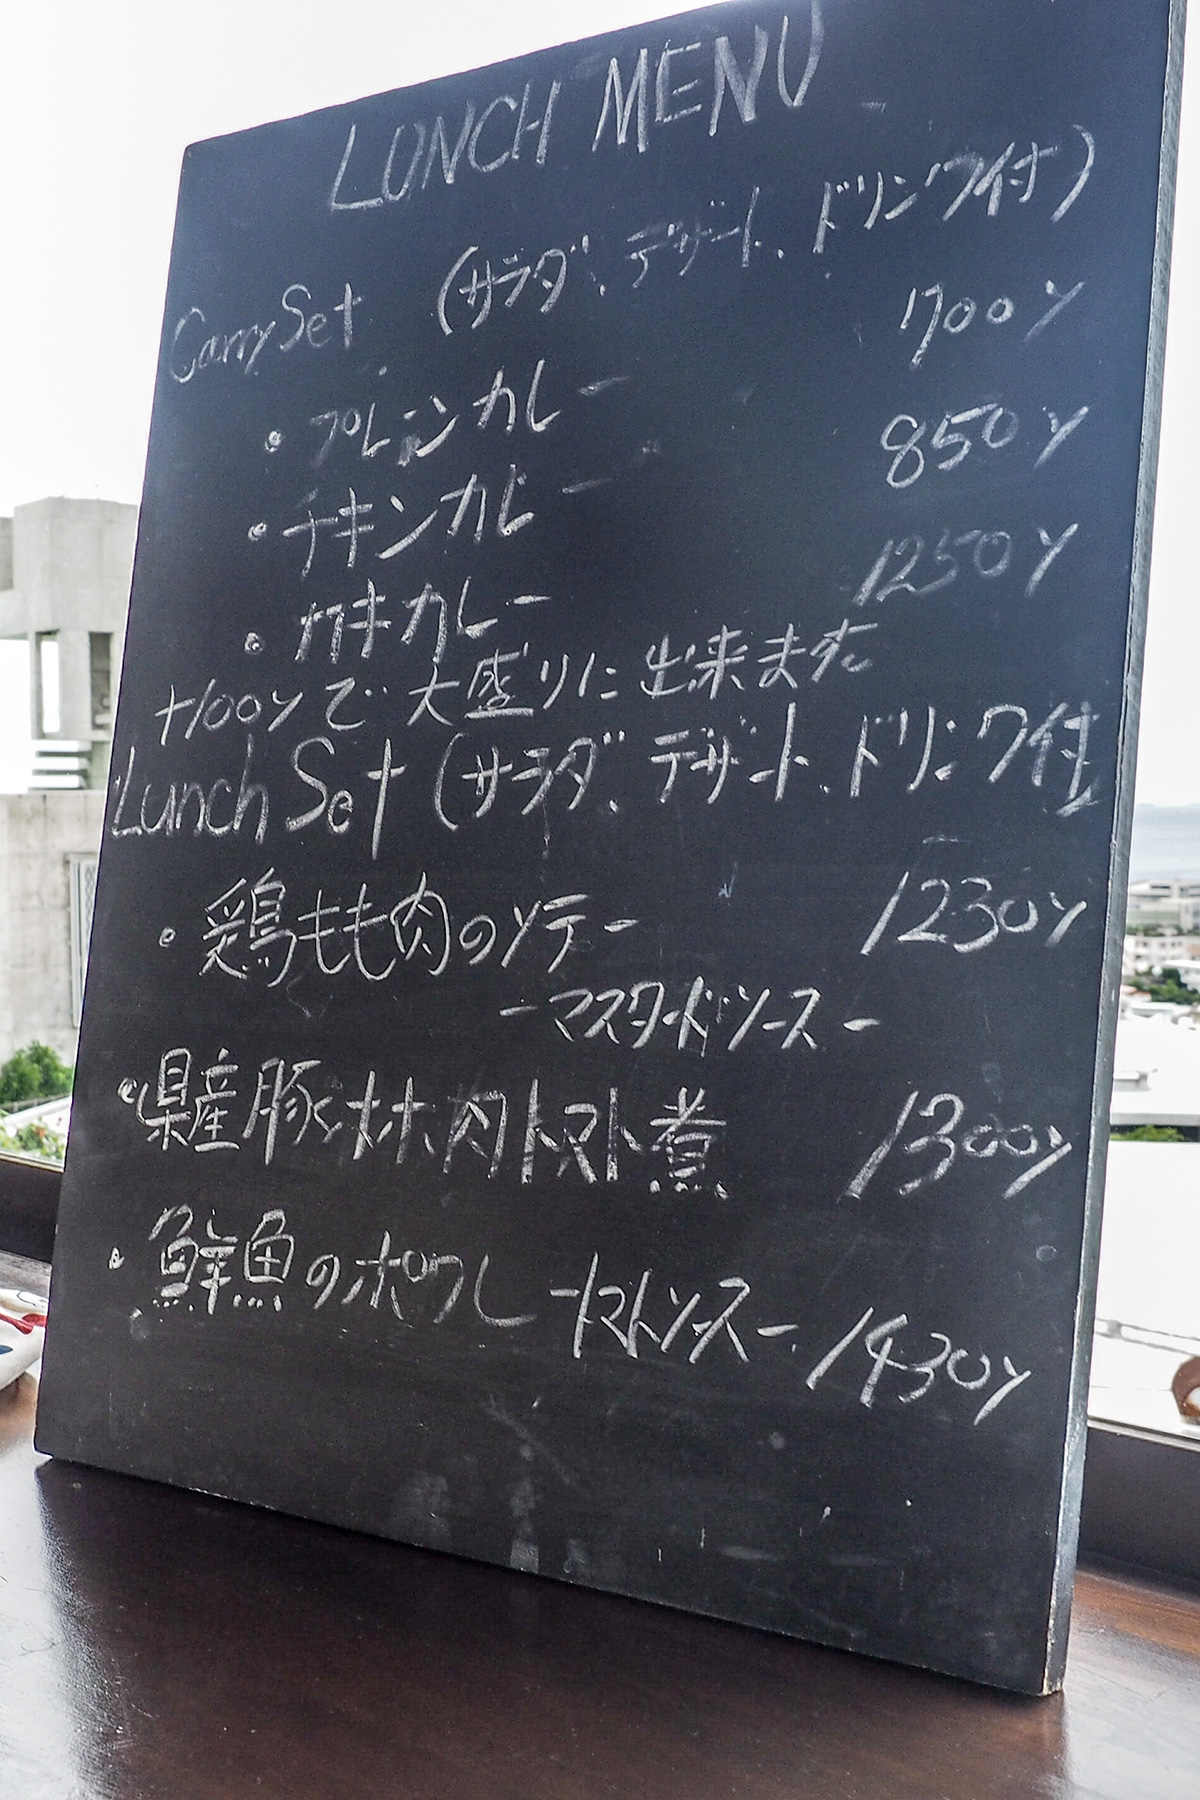 LUNCH MENU
Carry Set (サラダ、デザート、ドリンク付)
・プレーンカレー 700y
・チキンカレー 850y
・カキカレー 1250y
+100yで大盛りに出来ます
Lunch Set (サラダ、デザート、ドリンク付
・鶏もも肉のソテー 1230y
ーマスタードソースー
・県産豚ほホ肉トマト煮 1300y
・鮮魚のポワレ ートマトソースー 1430y